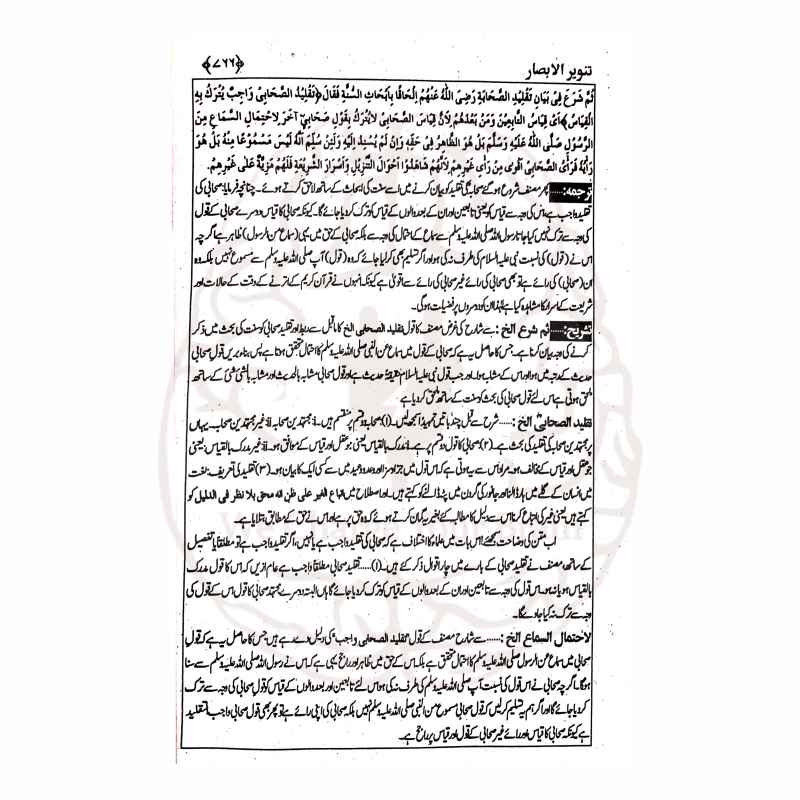 تنویر الابصار ﴿۷۶۶﴾
ثُمَّ شَرَعَ فِیْ بَیَانِ تَقْلِیْدِ الصَّحَابَةِ رَضِیَ اللّٰهُ عَنْهُمْ اِلْحَاقًا بِاَبْحَاثِ السُّنَّةِ فَقَالَ ﴿تَقْلِیْدُ الصَّحَابِیِّ وَاجِبٌ یُتْرَكُ بِهِ
الْقِیَاسُ﴾ اَیْ قِیَاسُ التَّابِعِیْنَ وَمَنْ بَعْدَهُمْ لِاَنَّ قِیَاسَ الصَّحَابِیِّ لَایُتْرَكُ بِقَوْلِ صَحَابِیٍّ آخَرَ لِاحْتِمَالِ السَّمَاعِ مِنَ
الرَّسُوْلِ صَلَّی اللّٰهُ عَلَیْهِ وَسَلَّمَ بَلْ هُوَ الظَّاهِرُ فِیْ حَقِّهٖ وَاِنْ لَمْ یُسْنِدْ اِلَیْهِ وَلَئِنْ سُلِّمَ اَنَّهٗ لَیْسَ مَسْمُوْعًا مِنْهُ بَلْ هُوَ
رَأْیُهٗ فَرَأْیُ الصَّحَابِیِّ اَقْوٰی مِنْ رَأْیِ غَیْرِهِمْ لِاَنَّهُمْ شَاهَدُوْا اَحْوَالَ التَّنْزِیْلِ وَاَسْرَارَ الشَّرِیْعَةِ فَلَهُمْ مَزِیَّةٌ عَلٰی غَیْرِهِمْ.
ترجمہ:...... پھر مصنف شروع ہو گئے صحابہ کی تقلید کو بیان کرنے میں اسے سنت کی ابحاث کے ساتھ لاحق کرتے ہوئے۔ چنانچہ فرمایا: صحابی کی
تقلید واجب ہے، اس کی وجہ سے قیاس کو یعنی تابعین اور ان کے بعد والوں کے قیاس کو ترک کر دیا جائے گا۔ کیونکہ صحابی کا قیاس دوسرے صحابی کے قول
کی وجہ سے ترک نہیں کیا جاتا رسول اللہ صلی اللہ علیہ وسلم سے سماع کے احتمال کی وجہ سے بلکہ صحابی کے حق میں یہی (سماع من الرسول) ظاہر ہے اگر چہ
اس نے (قول) کی نسبت نبی علیہ السلام کی طرف نہ کی ہو اور اگر تسلیم بھی کر لیا جائے کہ وہ (قول) آپ صلی اللہ علیہ وسلم سے مسموع نہیں بلکہ وہ
ان (صحابی) کی رائے ہے تو بھی صحابی کی رائے غیر صحابی کی رائے سے اقویٰ ہے کیونکہ انہوں نے قرآن کریم کے اترنے کے وقت کے حالات اور
شریعت کے اسرار کا مشاہدہ کیا ہے لہٰذا ان کو دوسروں پر فضیلت ہوگی۔
تشریح:...... ثم شرع الخ : سے شارح کی غرض مصنف کا قول تقلید الصحابی الخ کا ماقبل سے ربط اور تقلید صحابی کو سنت کی بحث میں ذکر
کرنے کی وجہ بیان کرنا ہے۔ جس کا حاصل یہ ہے کہ صحابی کے قول میں سماع من النبی صلی اللہ علیہ وسلم کا احتمال متحقق ہوتا ہے پس بناء بریں قول صحابی
حدیث کے درجہ میں ہوا اور اس کے مشابہ ہوا۔ اور جب قول نبی علیہ السلام حقیقۃً حدیث ہے اور قول صحابی مشابہ بالحدیث اور مشابہ بالشئ شئ کے ساتھ
ملحق ہوتی ہے اس لئے قول صحابی کی بحث کو سنت کے ساتھ ملحق کر دیا ہے
تقلید الصحابیؓ الخ :...... شرح سے قبل چند باتیں تمہیداً سمجھ لیں۔ (۱) صحابہ دو قسم پر منقسم ہیں۔ مجتہدین صحابہ غیر مجتہدین صحابہ۔ یہاں
پر مجتہدین صحابہ کی تقلید کی بحث ہے۔ (۲) صحابی کا قول دو قسم پر ہے۔ مدرک بالقیاس یعنی جو عقل اور قیاس کے موافق ہو۔ غیر مدرک بالقیاس، یعنی
جو عقل اور قیاس کے مخالف ہو۔ مراد اس سے یہ ہوتی ہے کہ اس قول میں جزا و سزا اور وعدہ وعید میں سے کسی ایک کا بیان ہو۔ (۳) تقلید کی تعریف: لغت
میں انسان کے گلے میں ہار ڈالنا اور جانور کی گردن میں پٹہ ڈالنے کو کہتے ہیں۔ اور اصطلاح میں اتباع الغیر علی ظن انه محق بلا نظر فی الدلیل کو
کہتے ہیں یعنی غیر کی اتباع کرنا اس سے دلیل کا مطالبہ کئے بغیر یہ گمان کرتے ہوئے کہ وہ حق پر ہے اور اس نے حق کے مطابق بتلایا ہے۔
اب متن کی وضاحت سمجھئے! اس بات میں علماء کا اختلاف ہے کہ صحابی کی تقلید واجب ہے یا نہیں، اگر تقلید واجب ہے تو مطلقاً یا تفصیل
کے ساتھ مصنف نے تقلید صحابی کے بارے میں چار اقوال ذکر کئے ہیں۔ (۱)..... تقلید صحابی مطلقاً واجب ہے عام ازیں کہ اس کا قول مدرک
بالقیاس ہو یا نہ ہو۔ اس قول کی وجہ سے تابعین اور ان کے بعد والوں کے قیاس کو ترک کر دیا جائے گا ہاں البتہ دوسرے مجتہد صحابی کا قول اس کے قول کی
وجہ سے ترک نہ کیا جاوے گا۔
لاحتمال السماع الخ :...... سے شارح مصنف کے قول "تقلید الصحابی واجب" کی دلیل دے رہے ہیں جس کا حاصل یہ ہے کہ قول
صحابی میں سماع من الرسول صلی اللہ علیہ وسلم کا احتمال متحقق ہے بلکہ اس کے حق میں ظاہر اور راجح یہی ہے کہ اس نے رسول اللہ صلی اللہ علیہ وسلم سے سنا
ہوگا۔ اگر چہ صحابی نے اس قول کی نسبت آپ صلی اللہ علیہ وسلم کی طرف نہ کی ہو اس لئے تابعین اور بعد والوں کے قیاس کو قول صحابی کی وجہ سے ترک
کر دیا جائے گا اور اگر ہم یہ تسلیم کر لیں کہ قول صحابی مسموع من النبی صلی اللہ علیہ وسلم نہیں بلکہ صحابی کی اپنی رائے ہے تو پھر بھی قول صحابی واجب التقلید
ہے کیونکہ صحابی کا قیاس اور رائے غیر صحابی کے قول اور قیاس پر راجح ہے۔